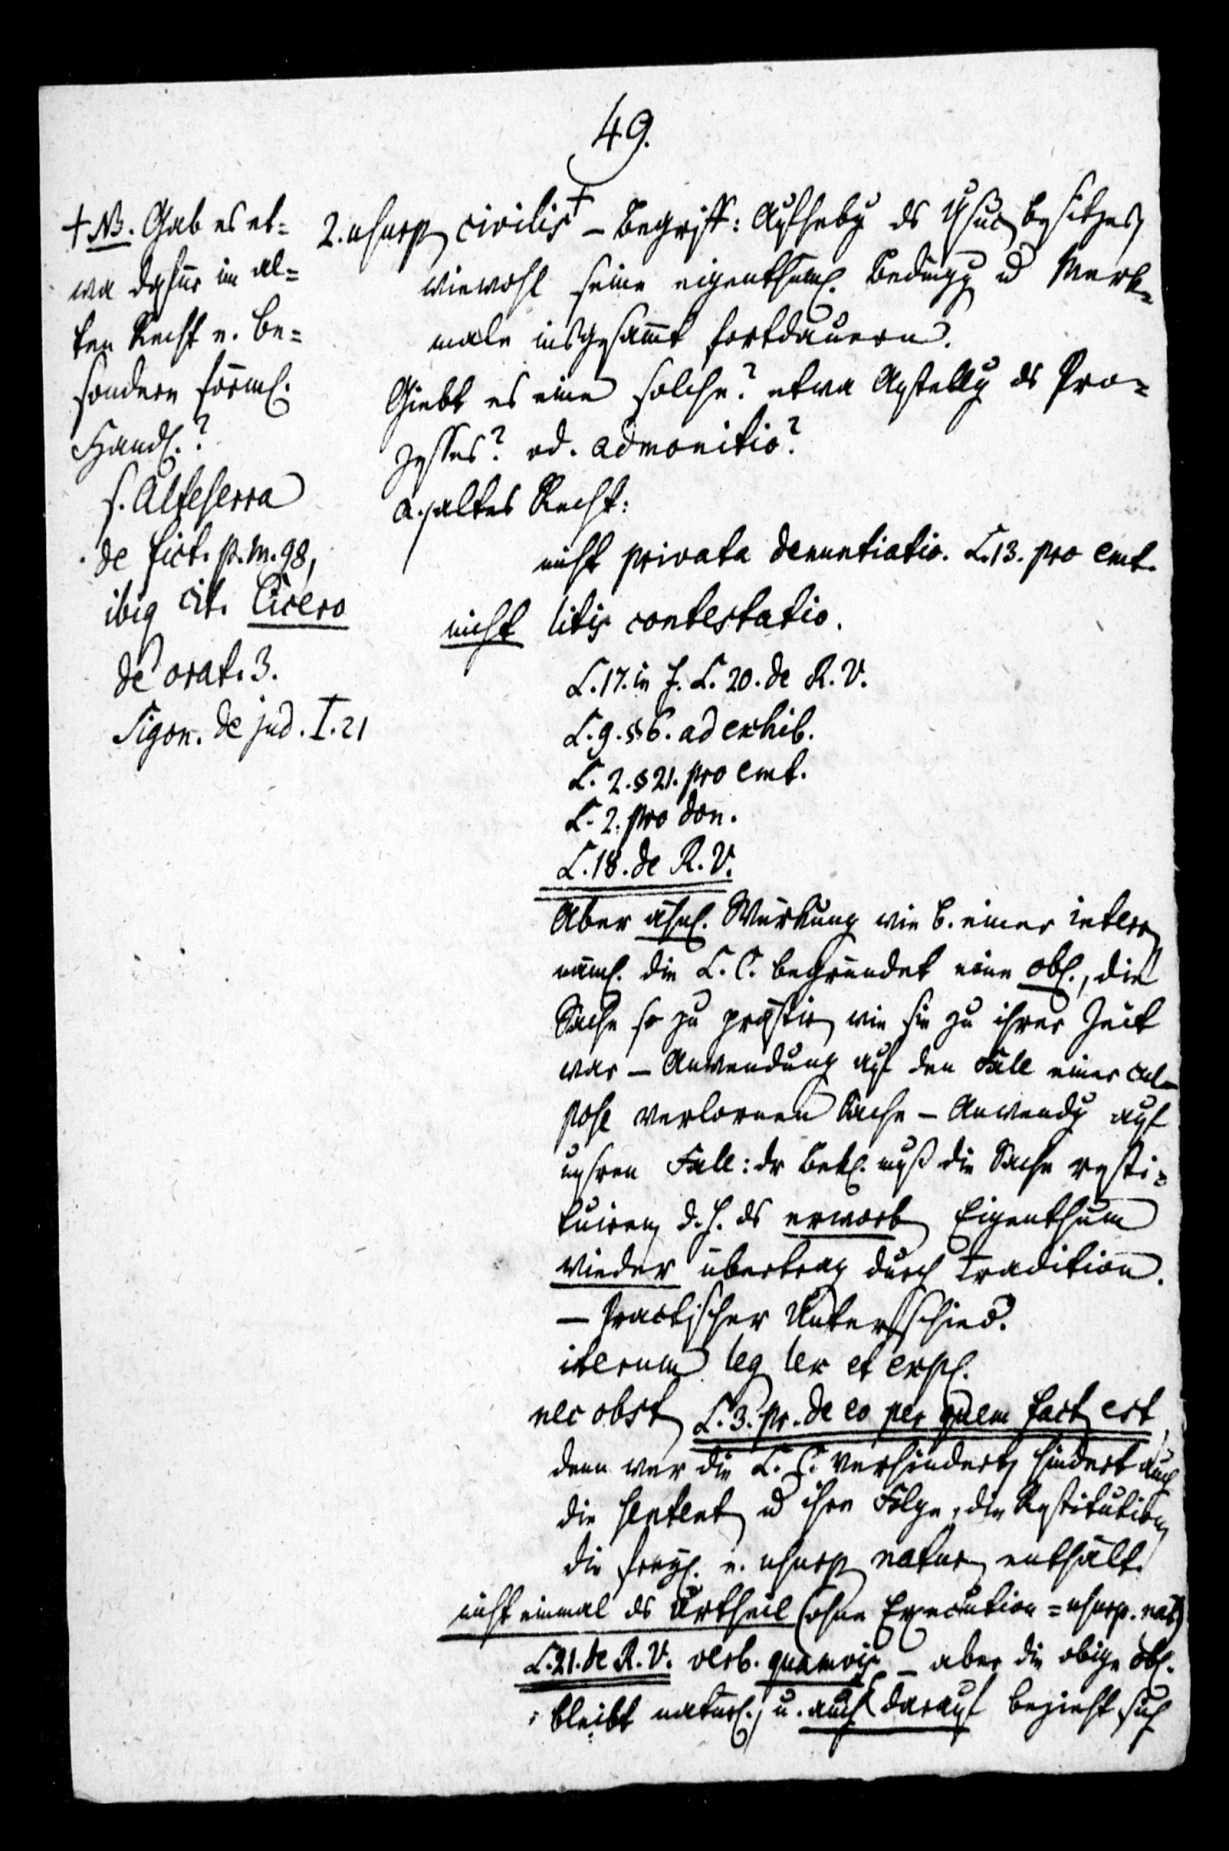 49.
+ NB. Gab es et-
wa dafür im al-
ten Recht e. be-
sondere förml.
Handl.?
s. Alteserra
de fict. p. m. 98,
ibiq cit. Cicero
de orat. 3.
Sigon. de jud. I. 21
2. usurp civilis + – Begriff: Aufhebg ds Usuc besitzes,
wiewohl seine eigenthüml. Bedingg u Merk-
male insgesammt fortdauern.
Giebt es eine solche? etwa Anstellg ds Pro-
zesses? od. admonitio?
a. altes Recht:
nicht privata denuntiatio. L. 13. pro emt.
nicht litis contestatio.
L. 17. in f. L. 20. de R. V.
L. 9. § 6. ad exhib.
L. 2. § 21. pro emt.
L. 2. pro don.
L. 18. de R. V.
Aber ähnl. Würkung wie b. einer interr
näml. die L. C. begründet eine obl., die
Sache so zu prästir wie sie zu jener Zeit
war – Anwendung auf den Fall einer cul-
pose verlornen Sache – Anwendg auf
unsren Fall: dr Bekl. muß die Sache resti-
tuiren, d. h. ds erworb Eigenthum
wieder übertrag durch Tradition.
– Practischer Unterschied.
iterum leg ler et expl.
nec obst L. 3. pr. de eo per quem fact est,
denn wer die L. C. verhindert, hindert auch
die sentent u ihre Folge, die Restitution
die freyl. e. usurp natur enthält.
nicht einmal ds Urtheil (ohne Execution = usurp. nat)
L. 21. de R. V. verb. quamvis – aber die obige obl.
bleibt natürl., u. auch darauf bezieht sich